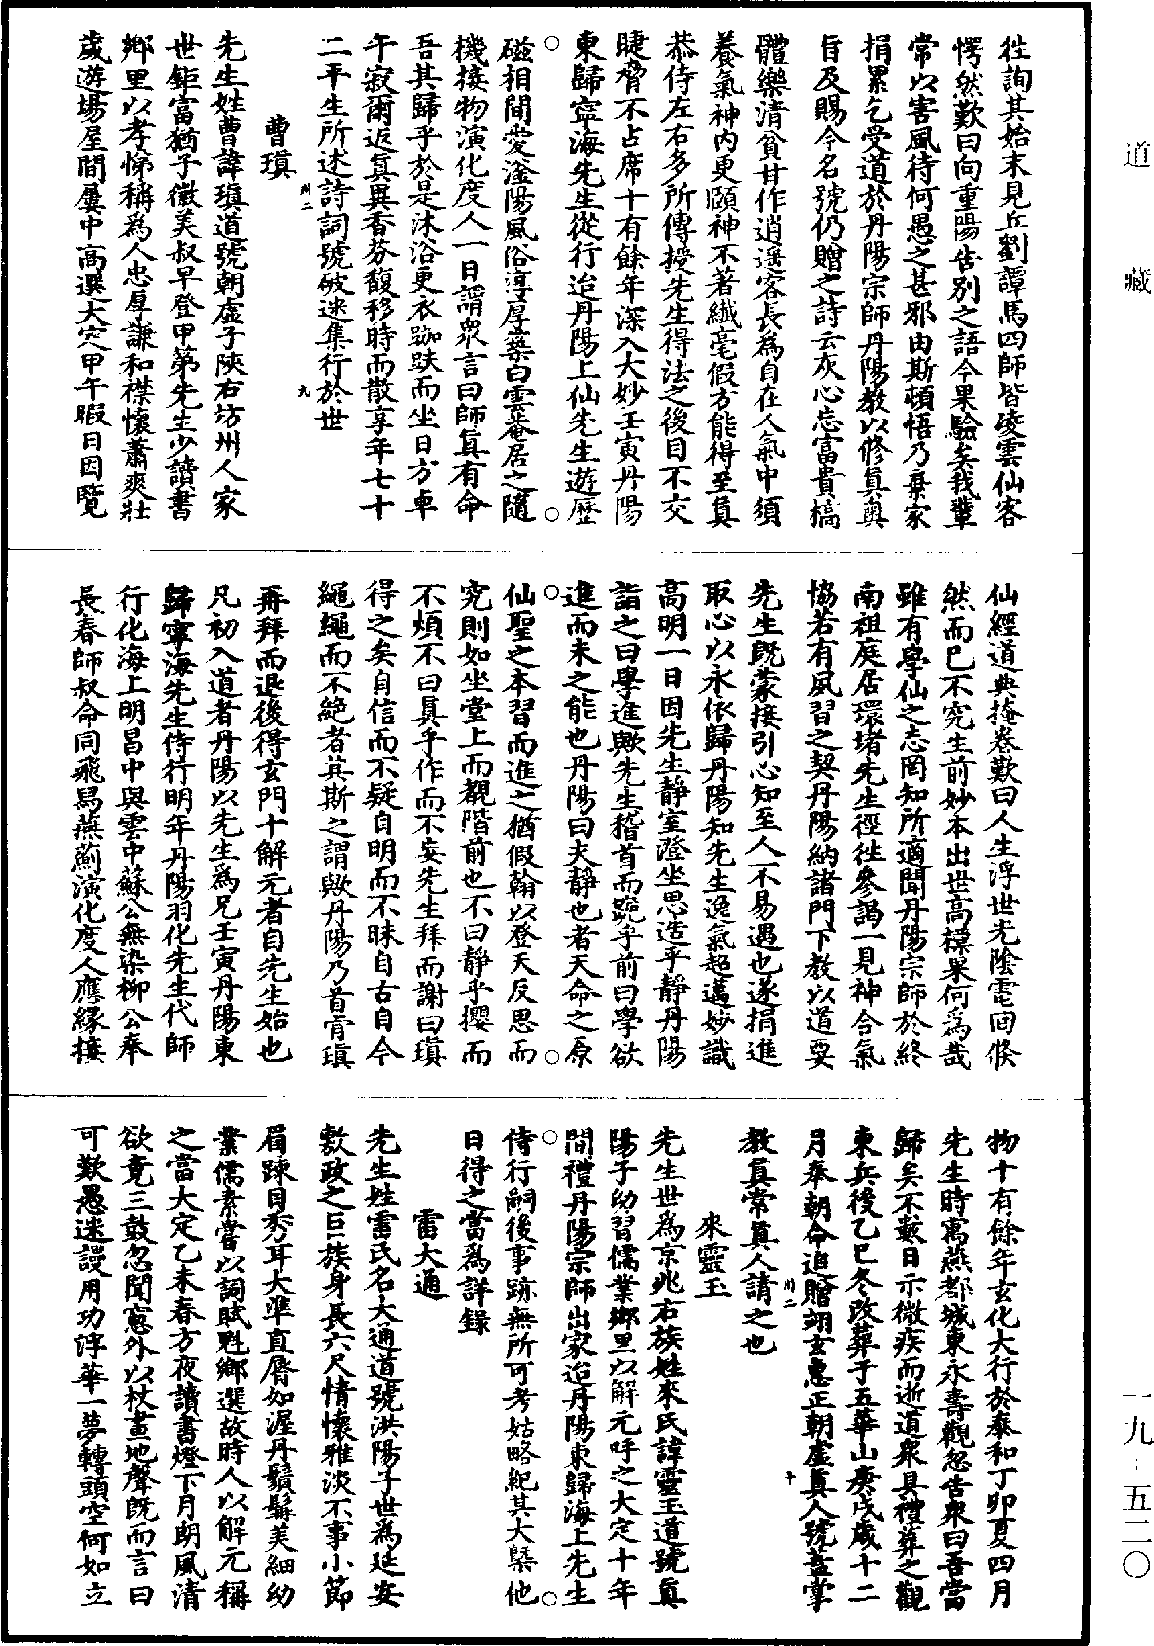 道藏
一九·五二〇
往詢其始末見丘劉譚馬四師皆陵雲仙客
愕然歎曰向重陽告別之語今果驗矣我輩
常以害風待何愚之甚邪由斯頓悟乃棄家
捐累乞受道於丹陽宗師丹陽教以修真奧
旨及賜今名號仍贈之詩云灰心忘富貴槁
體樂清貧甘作逍遙客長為自在人氣中須
養氣神內更頤神不著纖毫假方能得至真
恭侍左右多所傳授先生得法之後目不交
睫脅不占席十有餘年深入大妙壬寅丹陽
東歸寧海先生從行迨丹陽上仙先生遊歷
磁相間愛滏陽風俗淳厚築白雲菴居之隨
機接物演化度人一日謂眾言曰師真有命
吾其歸乎於是沐浴更衣跏趺而坐日方卓
午寂爾返真異香芬馥移時而散享年七十
二平生所述詩詞號破迷集行於世
曹瑱
先生姓曹諱瑱道號朝虛子陝右坊州人家
世鉅富猶子徽美叔早登甲第先生少讀書
鄉里以孝悌稱為人忠厚謙和襟懷蕭爽壯
歲遊場屋間屢中高選大定甲午暇日因覽
仙經道典掩卷歎曰人生浮世光陰電回倏
然而已不究生前妙本出世高標果何為哉
雖有學仙之志罔知所適聞丹陽宗師於終
南祖庭居環堵先生徑往參謁一見神合氣
協若有夙習之契丹陽納諸門下教以道要
先生既蒙接引心知至人不易遇也遂捐進
取心以永依歸丹陽知先生逸氣超邁妙識
高明一日因先生靜室澄坐思造乎靜丹陽
詣之曰學進歟先生稽首而跪乎前曰學欲
進而未之能也丹陽曰夫靜也者天命之原
仙聖之本習而進之猶假翰以登天反思而
究則如坐堂上而觀階前也不曰靜乎攖而
不煩不曰真乎作而不妄先生拜而謝曰瑱
得之矣自信而不疑自明而不昧自古自今
繩繩而不絕者其斯之謂歟丹陽乃首肯瑱
再拜而退後得玄門十解元者自先生始也
凡初入道者丹陽以先生為兄壬寅丹陽東
歸寧海先生侍行明年丹陽羽化先生代師
行化海上明昌中與雲中蘇公無染柳公奉
長春師叔命同飛舄燕薊演化度人應緣接
物十有餘年玄化大行於泰和丁卯夏四月
先生時寓燕都城東永壽觀忽告眾曰吾當
歸矣不數日示微疾而逝道眾具禮葬之觀
東兵後乙巳冬改葬于五華山庚戌歲十二
月奉朝命追贈翊玄惠正朝虛真人號蓋掌
教真常真人請之也
來靈玉
先生世為京兆右族姓來氏諱靈玉道號真
陽子幼習儒業鄉里以解元呼之大定十年
間禮丹陽宗師出家迨丹陽東歸海上先生
侍行嗣後事跡無所可考姑略紀其大槩他
日得之當為詳錄
雷大通
先生姓雷氏名大通道號洪陽子世為延安
敷政之巨族身長六尺情懷雅淡不事小節
眉踈目秀耳大準直脣如渥丹鬚髯美細幼
業儒素嘗以詞賦魁鄉選故時人以解元稱
之當大定乙未春方夜讀書燈下月朗風清
欲竟三鼓忽聞窻外以杖畫地聲既而言曰
可歎愚迷謾用功浮華一夢轉頭空何如立